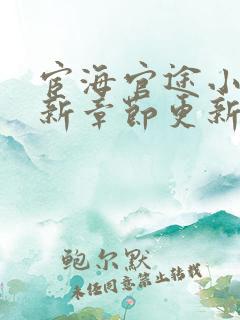 宦海官途小
新章节更新
鲍尔默
未经同意禁止转载